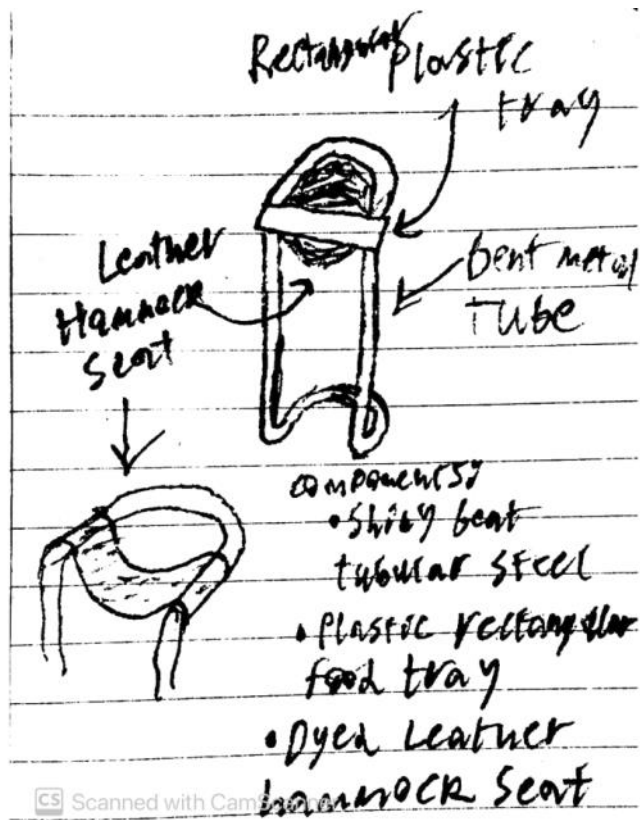 Rectangular plastic
tray
Leather
Hammock
Seat
bent metal
Tube
components:
• Shiny bent
tubular steel
• Plastic rectangular
food tray
• Dyed Leather
hammock Seat
CS Scanned with CamScanner